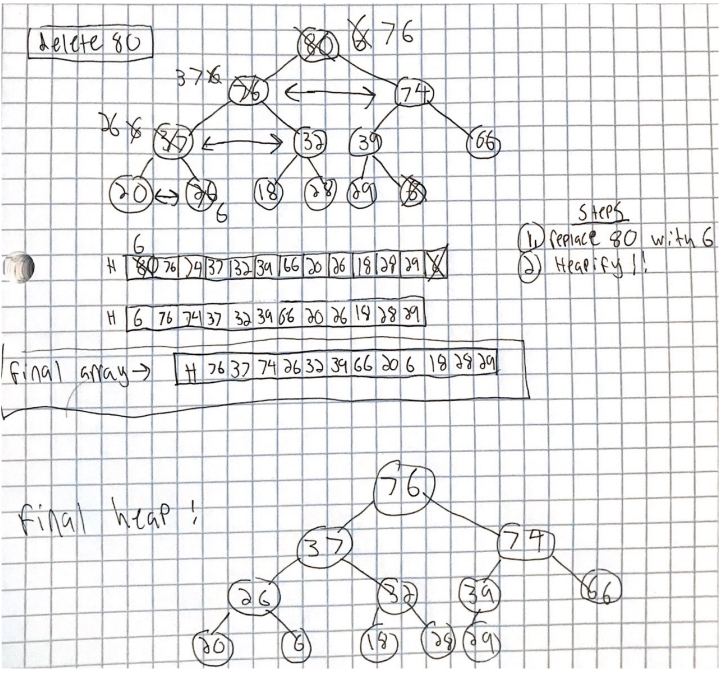 delete 80
80 6 76
37 6 76 74
26 6 37 32 39 66
20 26 6 18 28 29 6
Steps
① replace 80 with 6
② Heapify!!
6
H 80 76 74 37 32 39 66 20 26 18 28 29 6
H 6 76 74 37 32 39 66 20 26 18 28 29
final array → H 76 37 74 26 32 39 66 20 6 18 28 29
final heap!
76
37 74
26 32 39 66
20 6 18 28 29